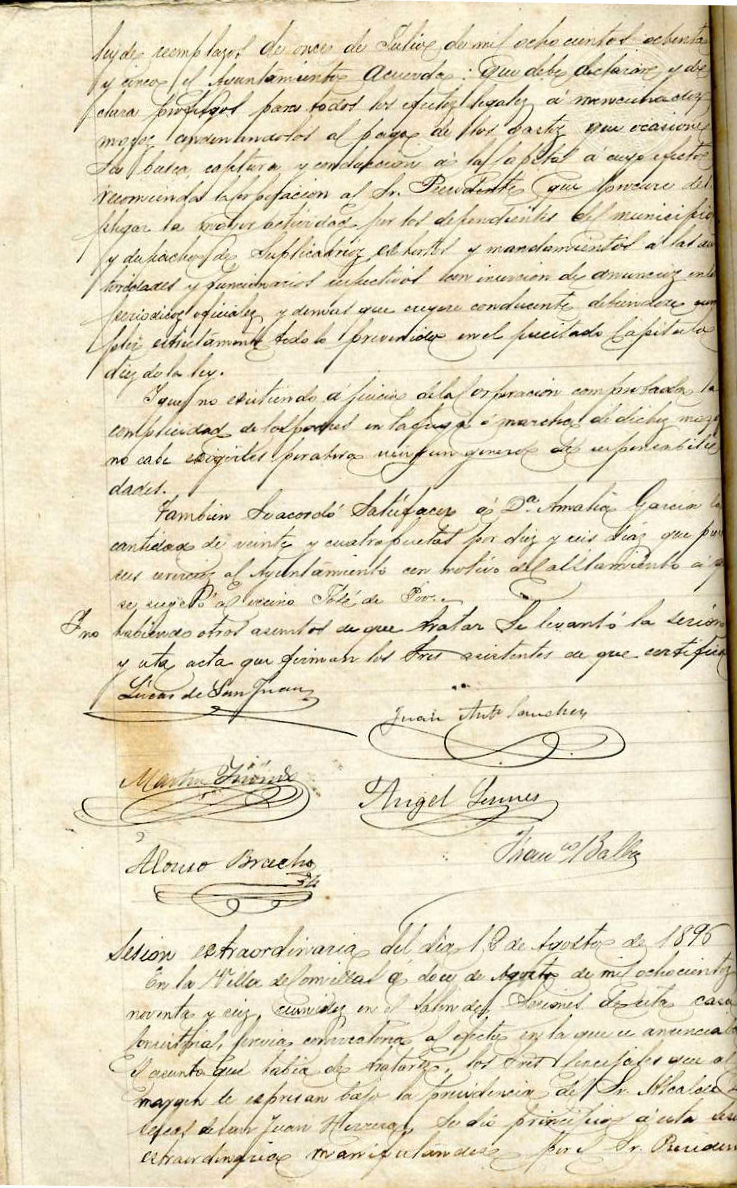 ley de reemplazos de once de Julio de mil ochocientos ochenta
y cinco, el Ayuntamiento Acuerda: Que debe declarar y de
clara profugos para todos los efectos legales á mencionados
mozos condenandolos al pago de los gastos que ocasione
su busca, captura y conduccion á la Capital á cuyo efecto
recomienda la corporacion al Sr. Presidente que procure des
plegar la mayor actividad por los dependientes del municipio
y despachos de Suplicatorios exhortos y mandamientos á las au
toridades y funcionarios respectivos con insercion de anuncios en los
periodicos oficiales y demas que creyere conducente debiendose cum
plir estrictamente todo lo prevenido en el precitado Capitulo
diez de la ley.
Y que no existiendo á juicio de la Corporacion comprobada la
complicidad de los padres en la fuga ó marcha de dichos mozos
no cabe exigirles por ahora ningun genero de responsabili
dades.
Tambien Se acordó Satisfacer á Dª. Amalia Garcia la
cantidad de veinte y cuatro pesetas por diez y seis dias que
sus servicios al Ayuntamiento con motivo del alistamiento á q
se sugetó al vecino José de
Y no habiendo otros asuntos de que tratar Se levantó la sesion
y esta acta que firman los Sres asistentes de que certifico
Lucas de San Juan
Juan Antº Sanchez
Martin
Angel
Alonso Bracho
Franco Balbas
Sesion extraordinaria del dia 12 de Agosto de 1896
En la Villa de Comillas á doce de Agosto de mil ochocientos
noventa y seis, reunidos en el Salon de Sesiones de esta casa
Consistorial, previa convocatoria al efecto en la que se anunciaba
el asunto que habia de tratarse, los Sres Concejales que al
margen se expresan bajo la presidencia del Sr. Alcalde D.
Lucas de San Juan Herrera, Se dió principio á esta sesion
extraordinaria manifestándose por el Sr. Presiden